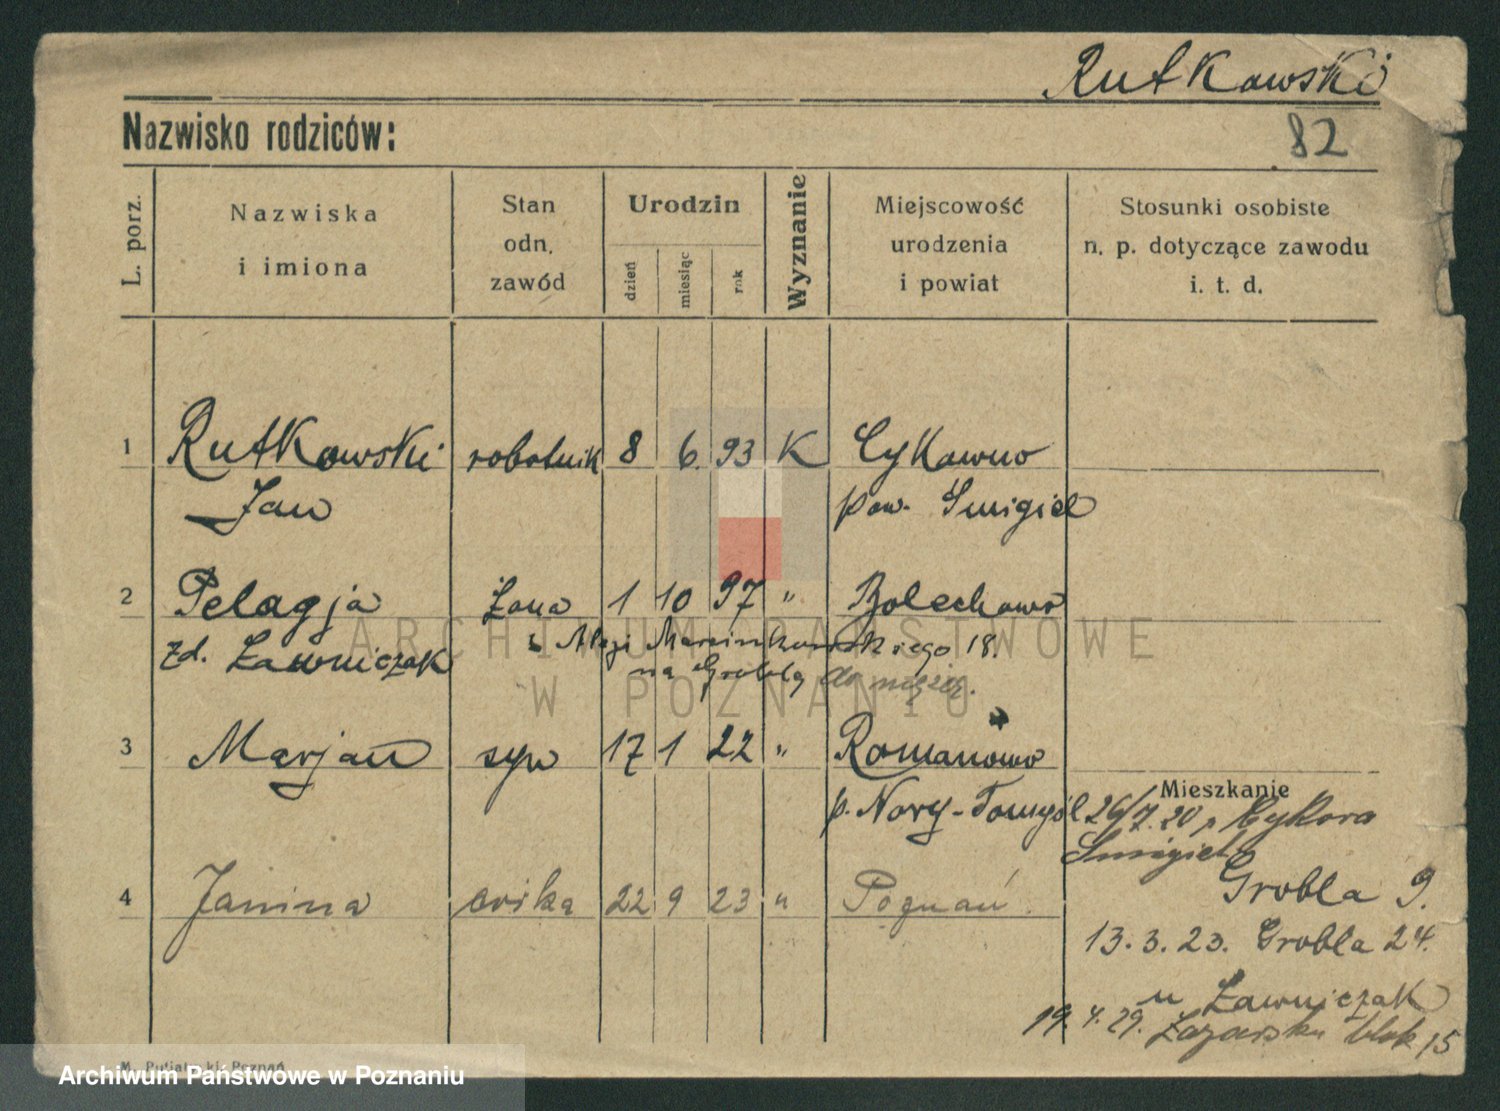 Rutkowski
82
Nazwisko rodziców:
L. porz.
Nazwiska
i imiona
Stan
odn.
zawód
Urodzin
dzień
miesiąc
rok
Wyznanie
Miejscowość
urodzenia
i powiat
Stosunki osobiste
n. p. dotyczące zawodu
i. t. d.
1 Rutkowski robotnik 8 6. 93 K Cykowno
Jan pow. Smigiel
2 Pelagja żona 1 10 97 " Bolechowo
Aleji Marcinkowskiego 18.
zd. Ławniczak
na Groblę do męża.
3 Marjan syn 17 1 22 " Romanowo
p. Nowy-Tomyśl
Mieszkanie
26/7. 20 p. Cykora
Smigiel
Grobla 9.
4 Janina córka 22 9 23 " Poznań.
13. 3. 23. Grobla 24.
u Ławniczak
19. 4. 29. blok 15
ARCHIWUM PAŃSTWOWE
W POZNANIU
Poznań
Archiwum Państwowe w Poznaniu